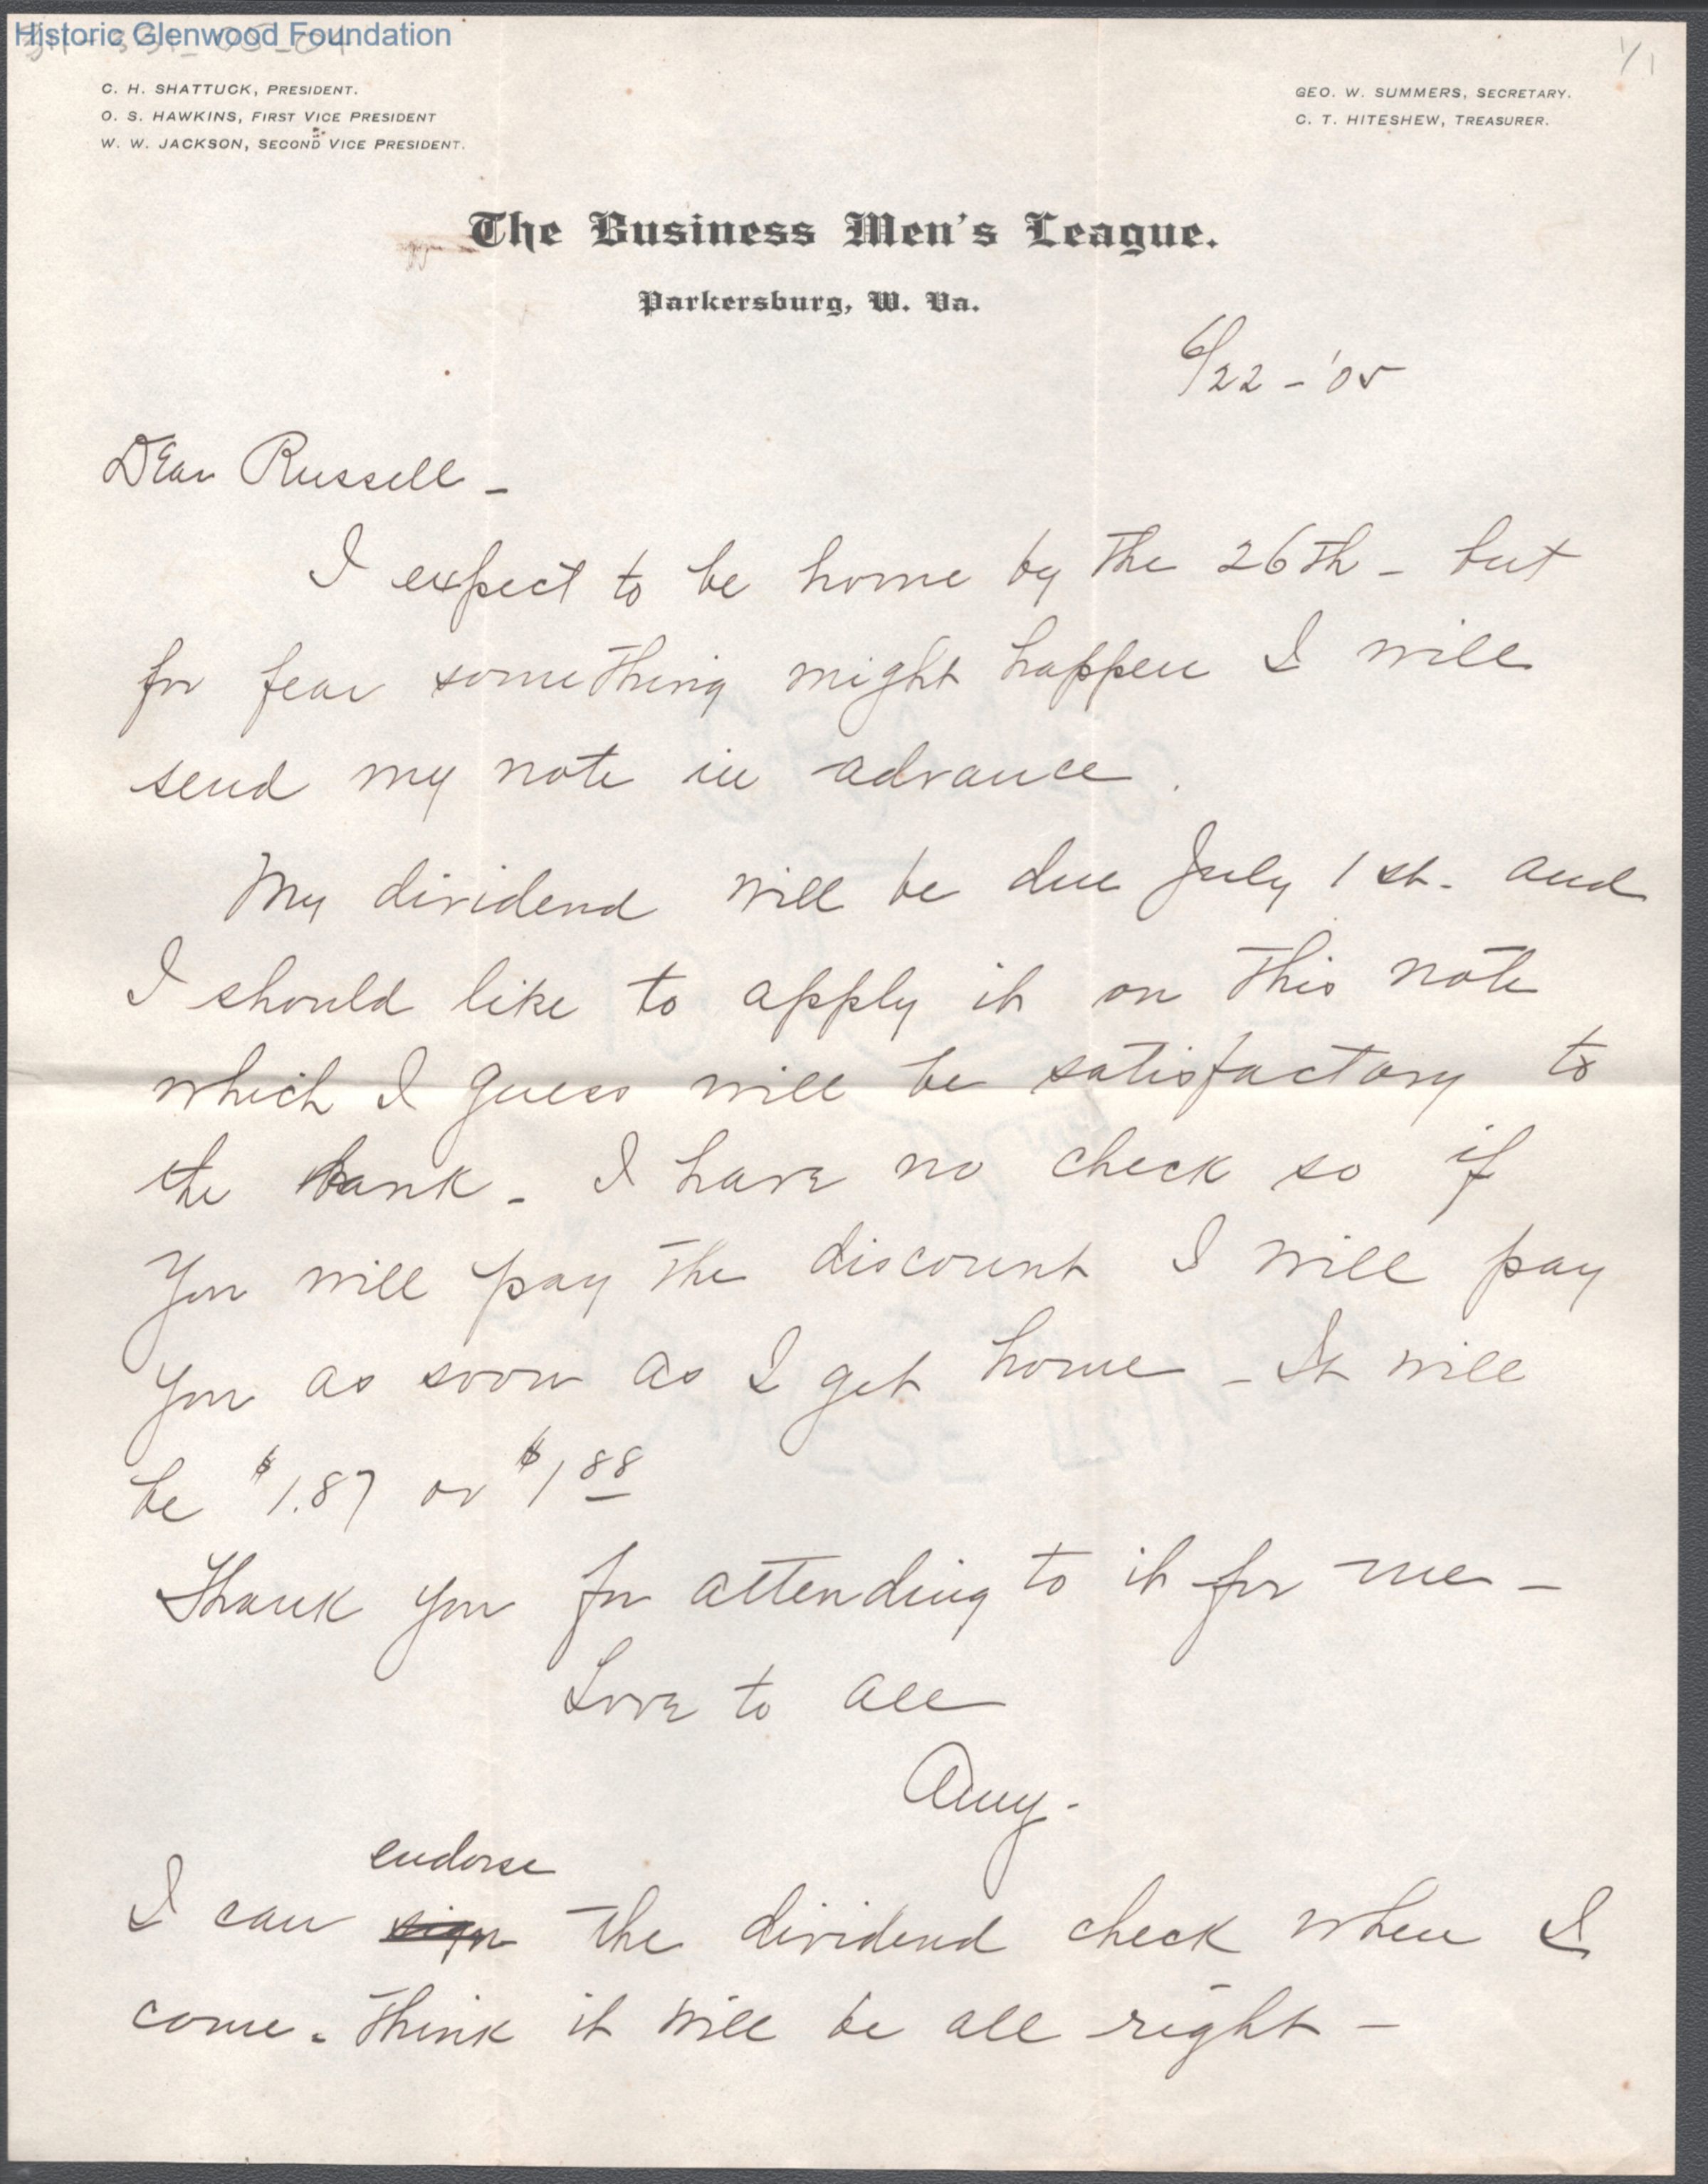 Historic Glenwood Foundation
1/1
C. H. SHATTUCK, PRESIDENT.
O. S. HAWKINS, FIRST VICE PRESIDENT
W. W. JACKSON, SECOND VICE PRESIDENT.
GEO. W. SUMMERS, SECRETARY.
C. T. HITESHEW, TREASURER.
The Business Men's League.
Parkersburg, W. Va.
6/22 - '05
Dear Russell -
I expect to be home by the 26th - but
for fear something might happen I will
send my note in advance.
My dividend will be due July 1st. and
I should like to apply it on this note
which I guess will be satisfactory to
the bank - I have no check so if
you will pay the discount I will pay
you as soon as I get home - It will
be $1.87 or $1 88
Thank you for attending to it for me -
Love to all
Amy.
endorse
I can sign the dividend check when I
come. Think it will be all right -